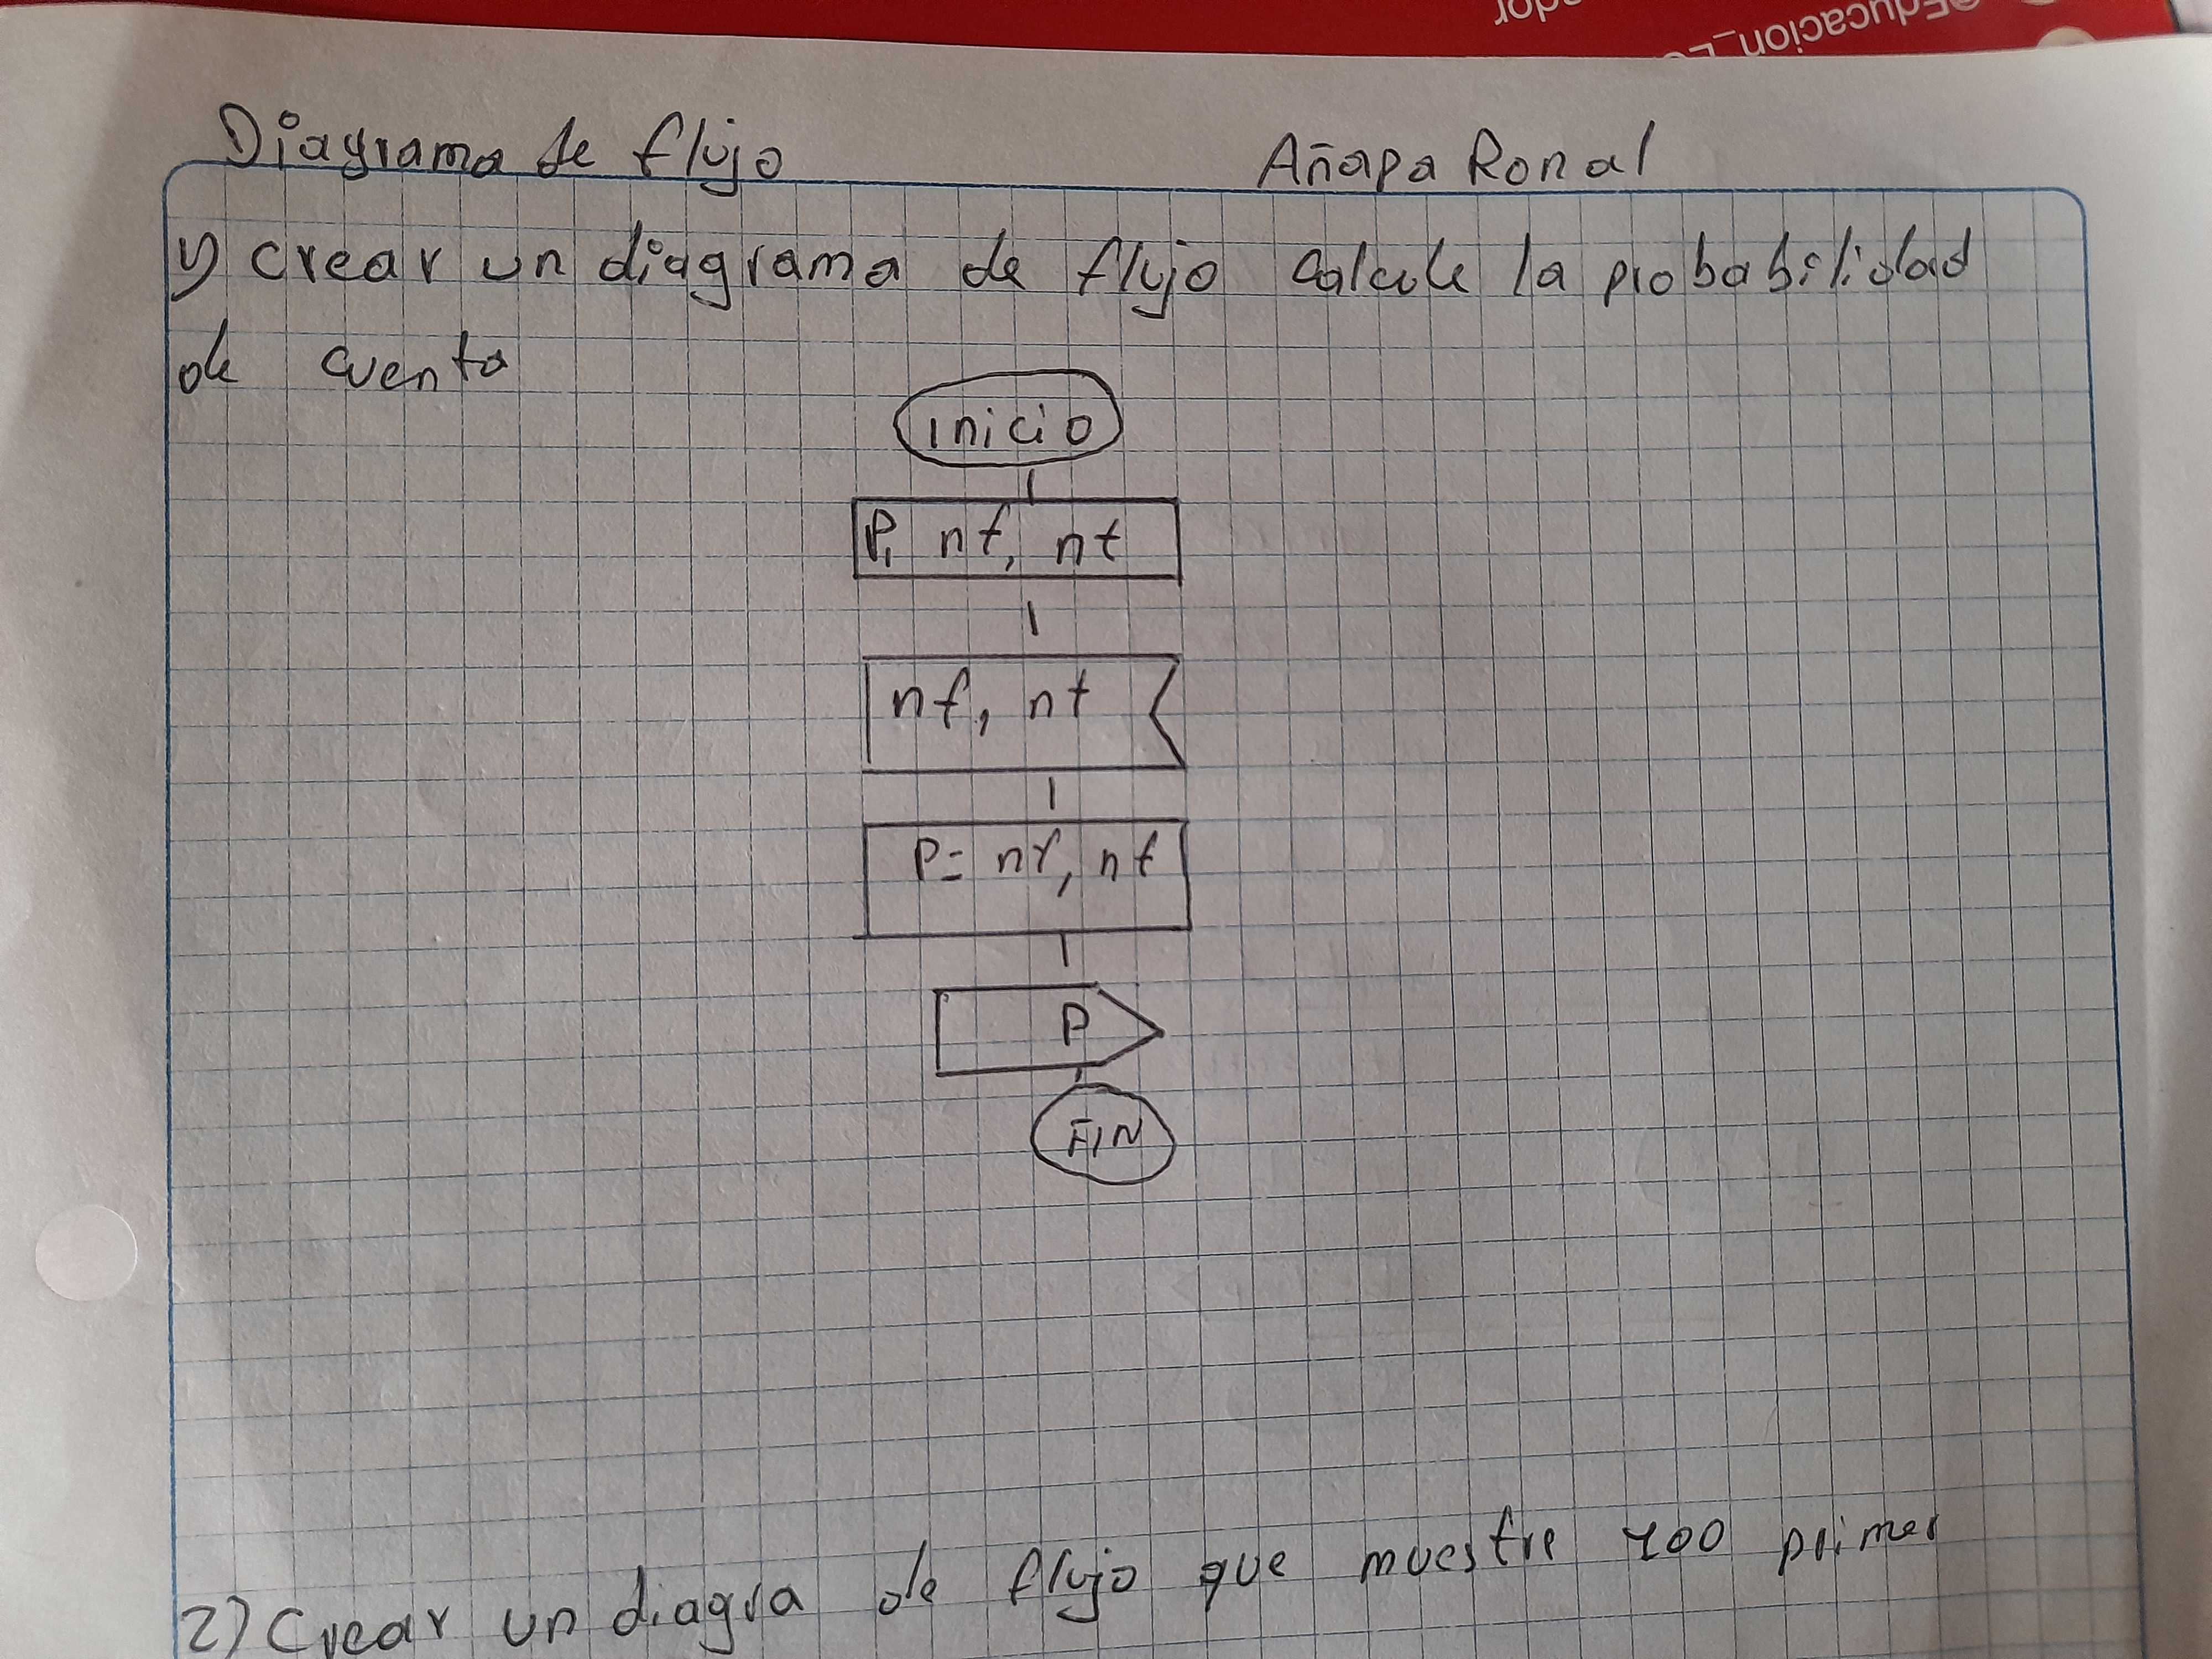 Diagrama de flujo Añapa Ronal
1) crear un diagrama de flujo calcule la probabilidad
de evento
inicio
P, nf, nt
nf, nt
P= nf, nt
P
FIN
2) Crear un diagra de flujo que muestre 400 primer
@Educacion_E
ador